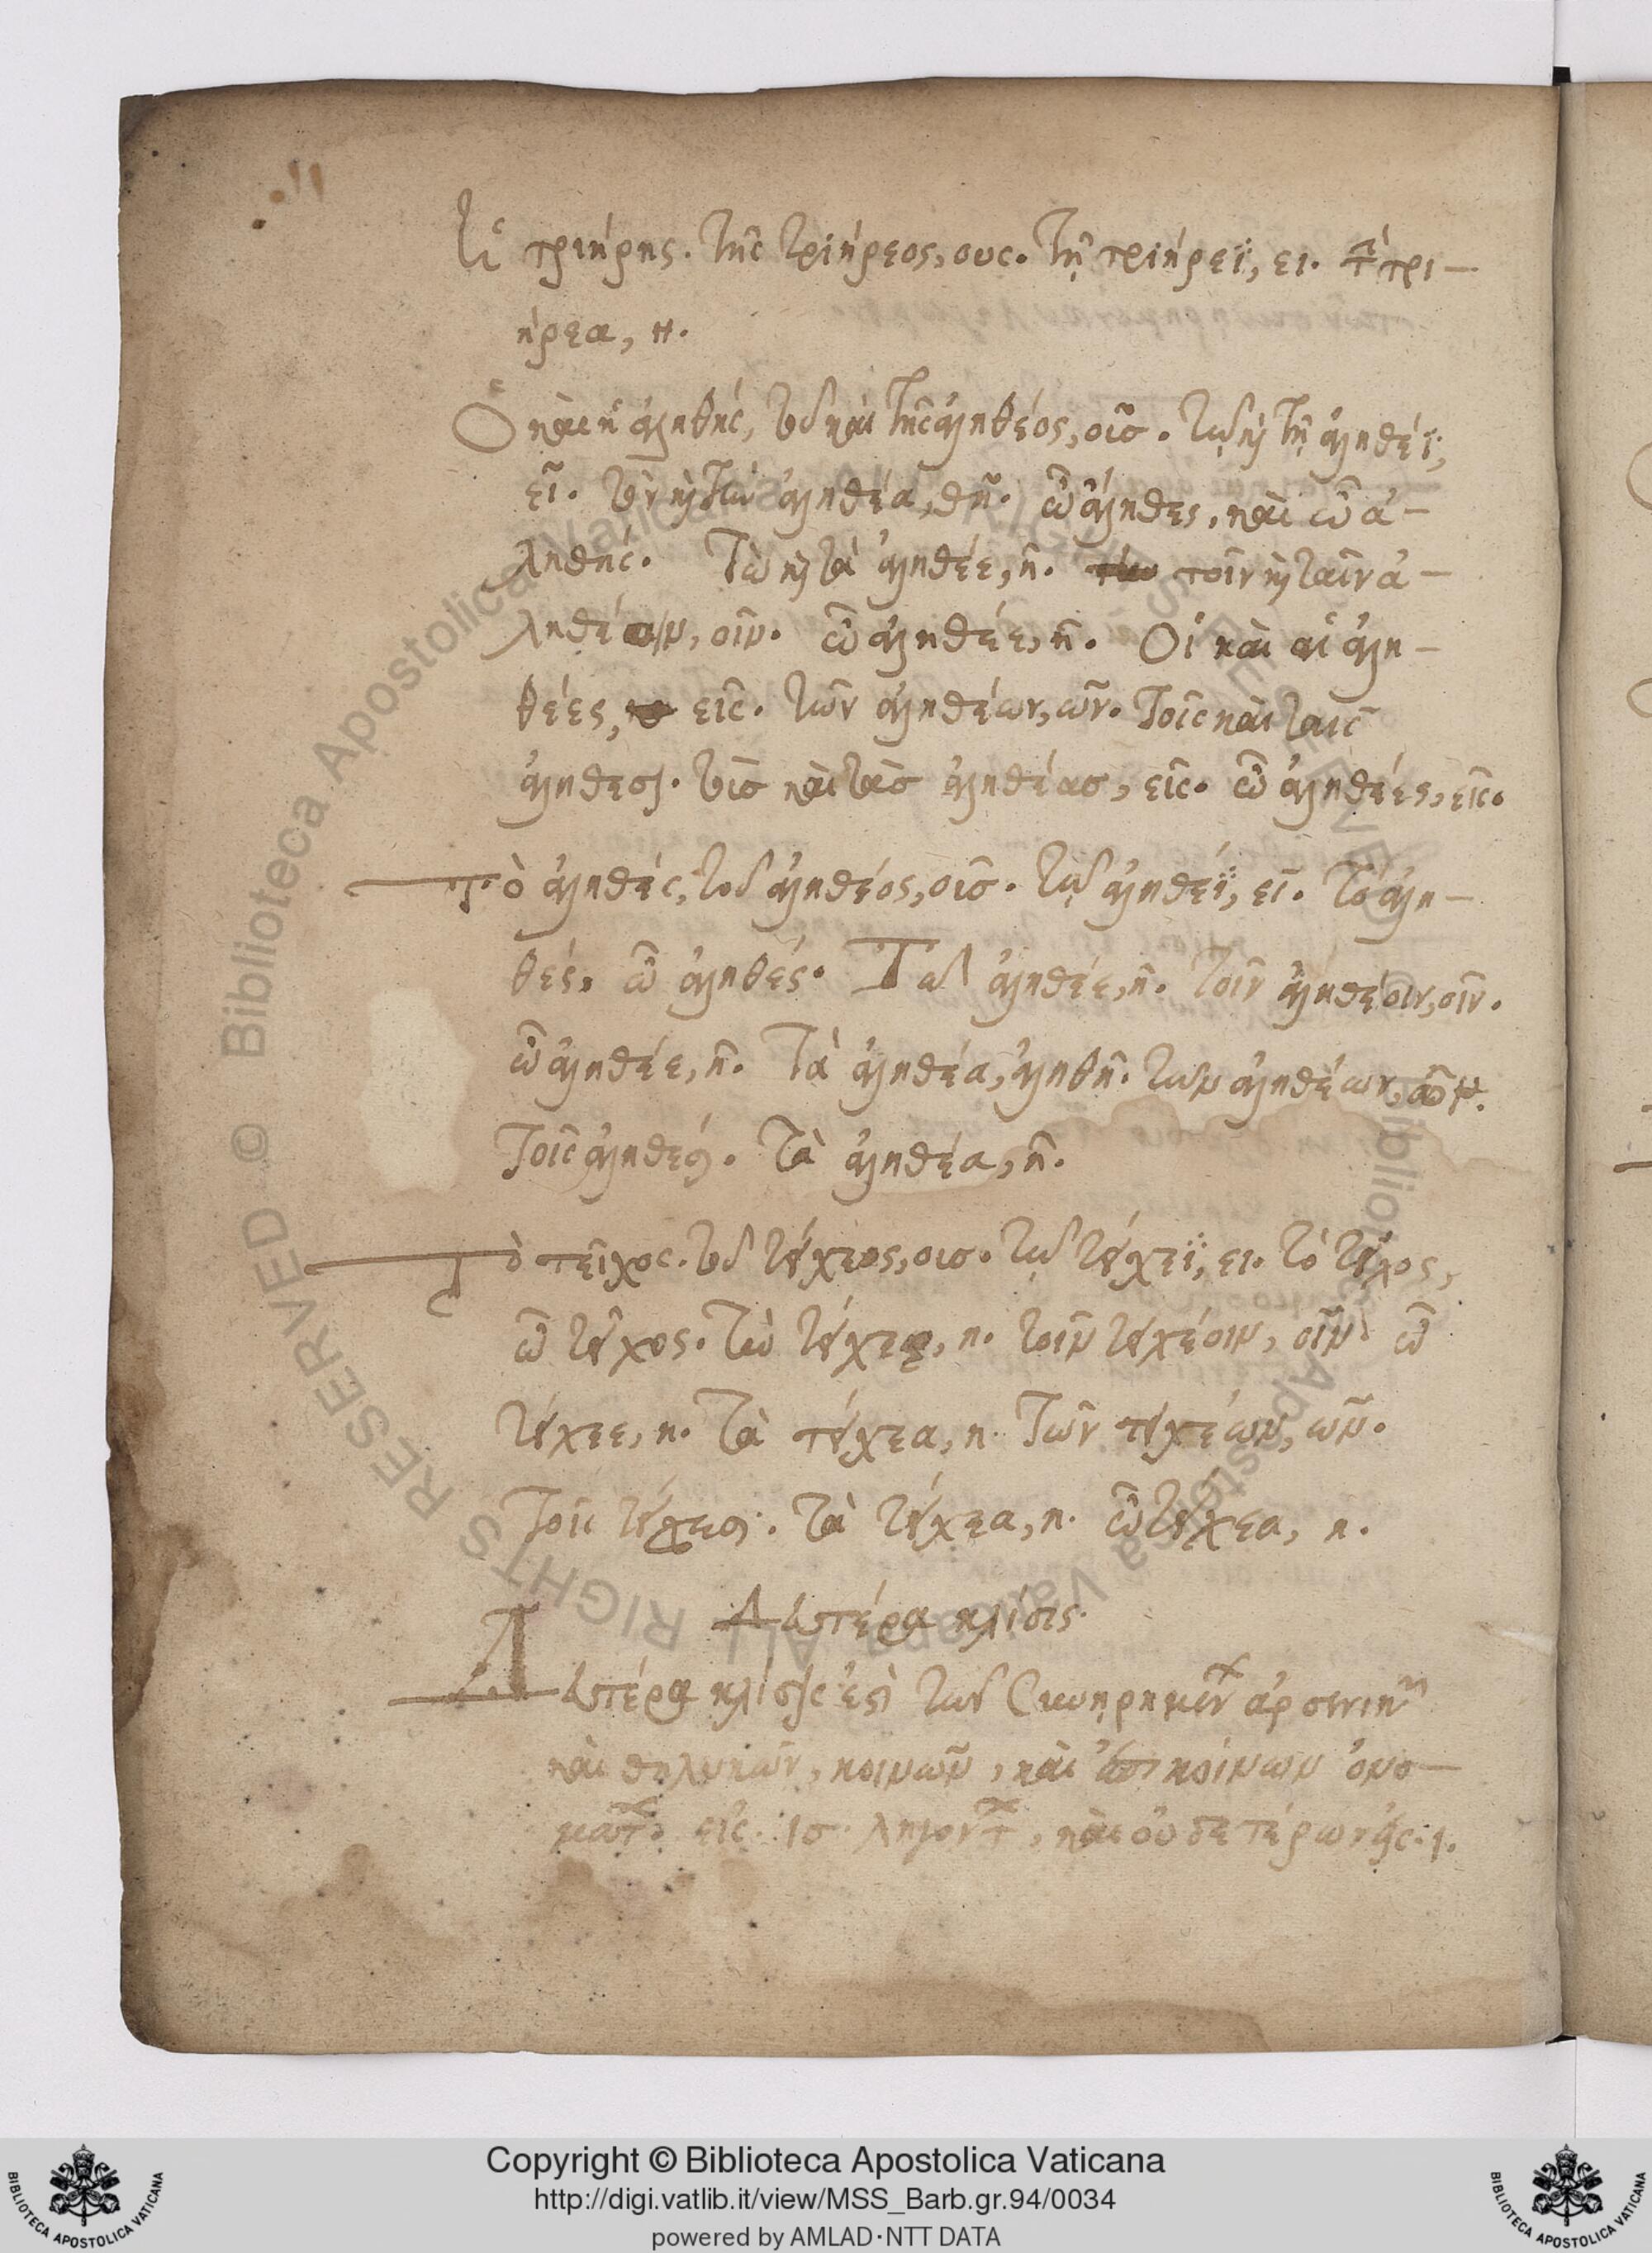 Ἡ τριήρης. τῆς τριήρεος, ους. τῇ τριήρεϊ, ει. τὴν τρι-
ήρεα, η.
Ὁ καὶ ἡ ἀληθής, τοῦ καὶ τῆς ἀληθέος, οῦσ. τῷ καὶ τῇ ἀληθέϊ,
εῖ. τὸν καὶ τὴν ἀληθέα, θῆ. ὦ ἀληθες, καὶ ὦ ἀ-
ληθής. Τὼ καὶ τὰ ἀληθέε, ῆ. τοῖν καὶ ταῖν ἀ-
ληθέοιν, οῖν. ὦ ἀληθέε, ῆ. Οἱ καὶ αἱ ἀλη-
θέες, εῖς. τῶν ἀληθέων, ῶν. Τοῖς καὶ ταῖς
ἀληθεσι. τοὺσ καὶ τὰσ ἀληθέασ, εῖς. ὦ ἀληθέες, εῖς.
Τὸ ἀληθές, τοῦ ἀληθέος, οῦσ. τῷ ἀληθέϊ, εῖ. τὸ ἀλη-
θές. ὦ ἀληθές. Τὼ ἀληθέε, ῆ. τοῖν ἀληθέοιν, οῖν.
ὦ ἀληθέε, ῆ. Τὰ ἀληθέα, ἀληθῆ. τῶν ἀληθέων, ῶν.
Τοῖς ἀληθέσι. Τὰ ἀληθέα, ῆ.
Τὸ τεῖχος. τοῦ τείχεος, ουσ. τῷ τείχεϊ, ει. τὸ τεῖχος,
ὦ τεῖχος. Τὼ τείχεε, η. τοῖν τειχέοιν, οῖν ὦ
τείχεε, η. Τὰ τείχεα, η. Τῶν τειχέων, ῶν.
Τοῖς τείχεσι. Τὰ τείχεα, η. ὦ τείχεα, η.
Δευτέρα κλίσις.
Δευτέρα κλίσις ἐστὶ τῶν συνῃρημένων ἀρσενικῶν
καὶ θηλυκῶν, κοινῶν, καὶ ἐπικοίνων ὀνο-
μάτων εἰς ισ ληγόντων, καὶ οὐδετέρων εἰς ι.